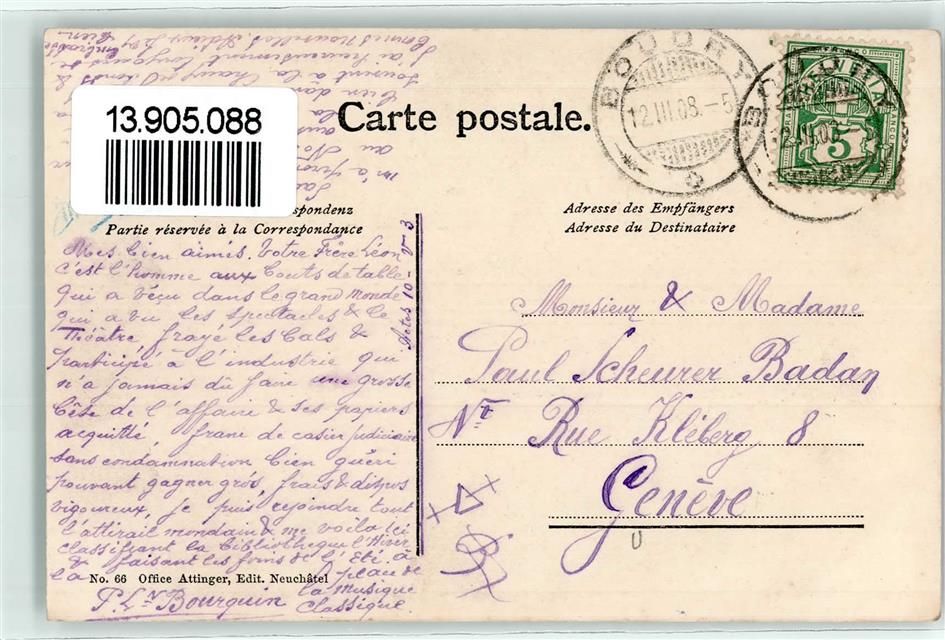 13.905.088
Carte postale.
BOUDRY
12.III.08.-5
BOUDRY
12.III.08
HELVETIA
5
Partie réservée à la Correspondance
Adresse des Empfängers
Adresse du Destinataire
Mes bien aimés. Votre Frère Léon
c'est l'homme aux bouts de table
qui a vécu dans le grand monde
qui a vu les spectacles & le
Théâtre, frayé les bals &
participé à l'industrie qui
n'a jamais dû faire une grosse
bêse de l'affaire & ses papiers
acquitté, franc de casier judiciaire
sans condamnation bien guéri
pouvant gagner gros, frais & dispos
vigoureux, je puis rejoindre tout
l'attirail mondain & me voilà ici
classifiant la bibliothèque l'Hiver
& faisant les foins de l'Eté. à
la place de
la musique
classique.
P. Ln Bourquin
Actes 10 - V 3
souvent à la Chaux de Fonds &
Monsieur & Madame
Paul Scheurer Badan
Nt Rue Kléberg 8
Genève
No. 66 Office Attinger, Edit. Neuchâtel